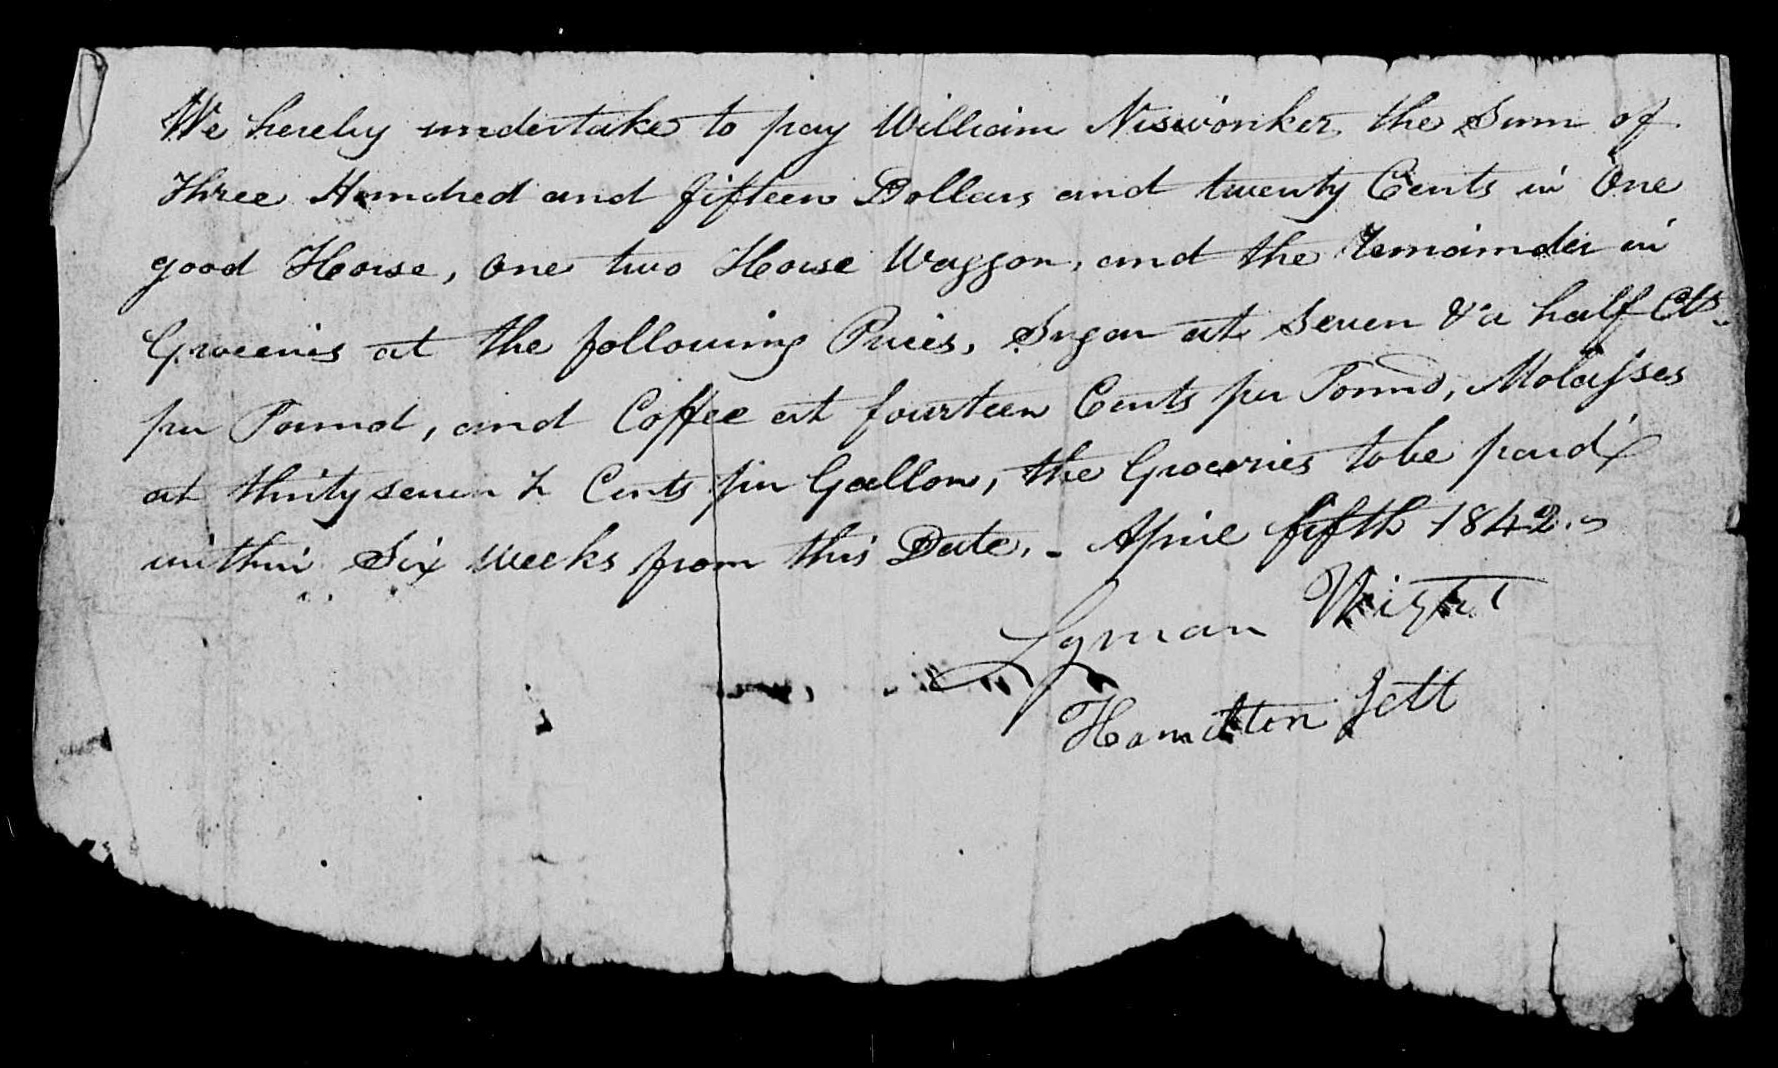 We hereby undertake to pay William Niswonker, the Sum of
Three Hundred and fifteen Dollars and twenty Cents in One
good Horse, One two Horse Waggon, and the remainder in
Groceries at the following Prices, Sugar at Seven & a half Cts.
per Pound, and Coffee at fourteen Cents per Pound, Molasses
at thirty seven ½ Cents per Gallon, the Groceries to be paid
within Six Weeks from this Date. - April fifth 1842.
Lyman Wight
Hamilton Jett